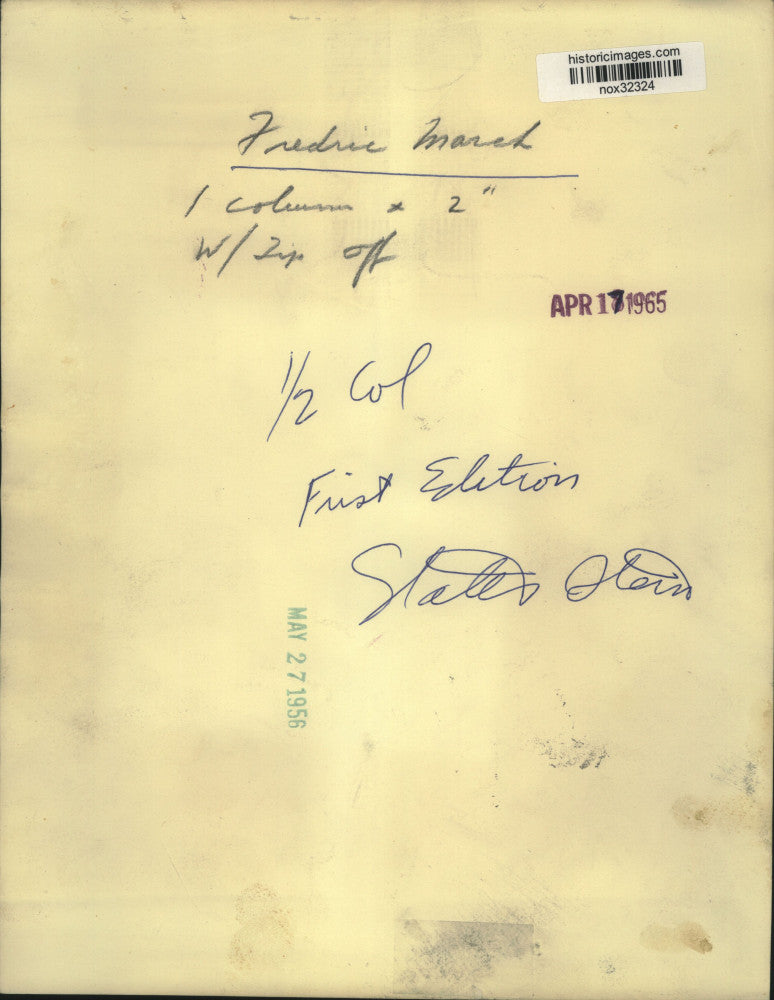 historicimages.com
nox32324
Fredric March
1 column x 2"
W/ Zip off
APR 17 1965
1/2 Col
First Edition
States Item
MAY 27 1956